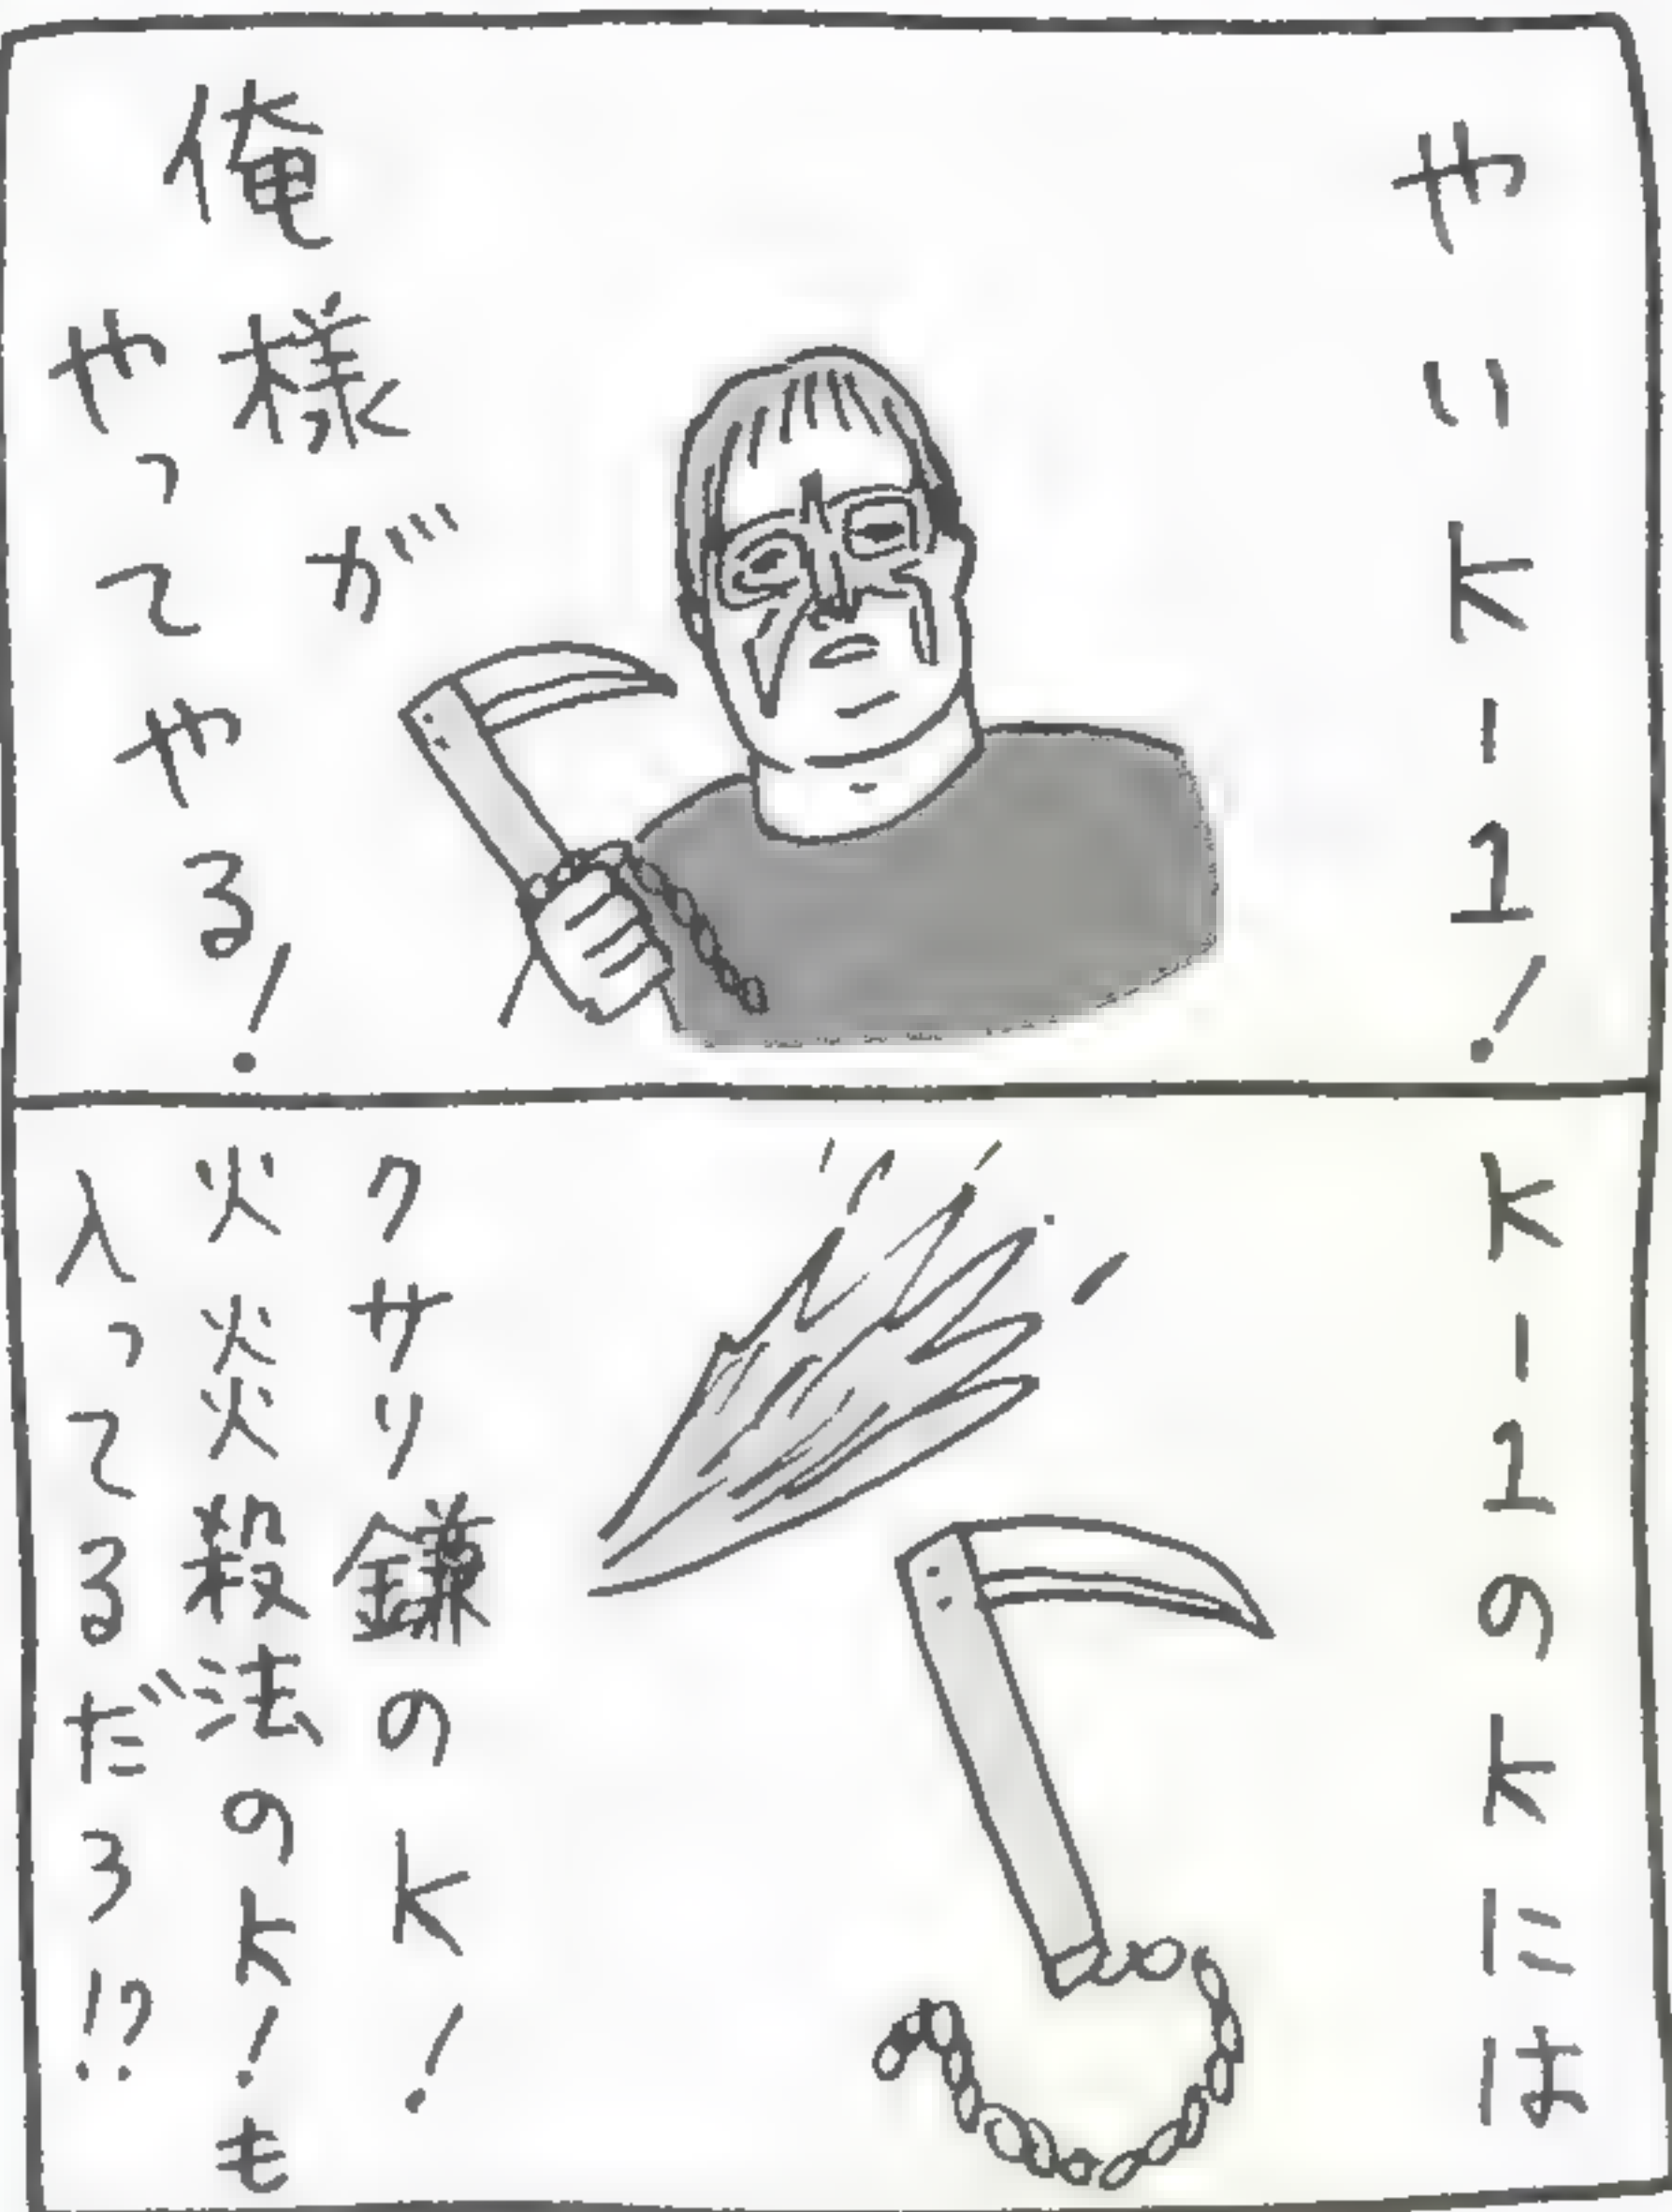 やいK-1!
俺様が
やってやる!
K-1のKには
クサリ鎌のK!
火炎殺法のK!も
入ってるだろ!?